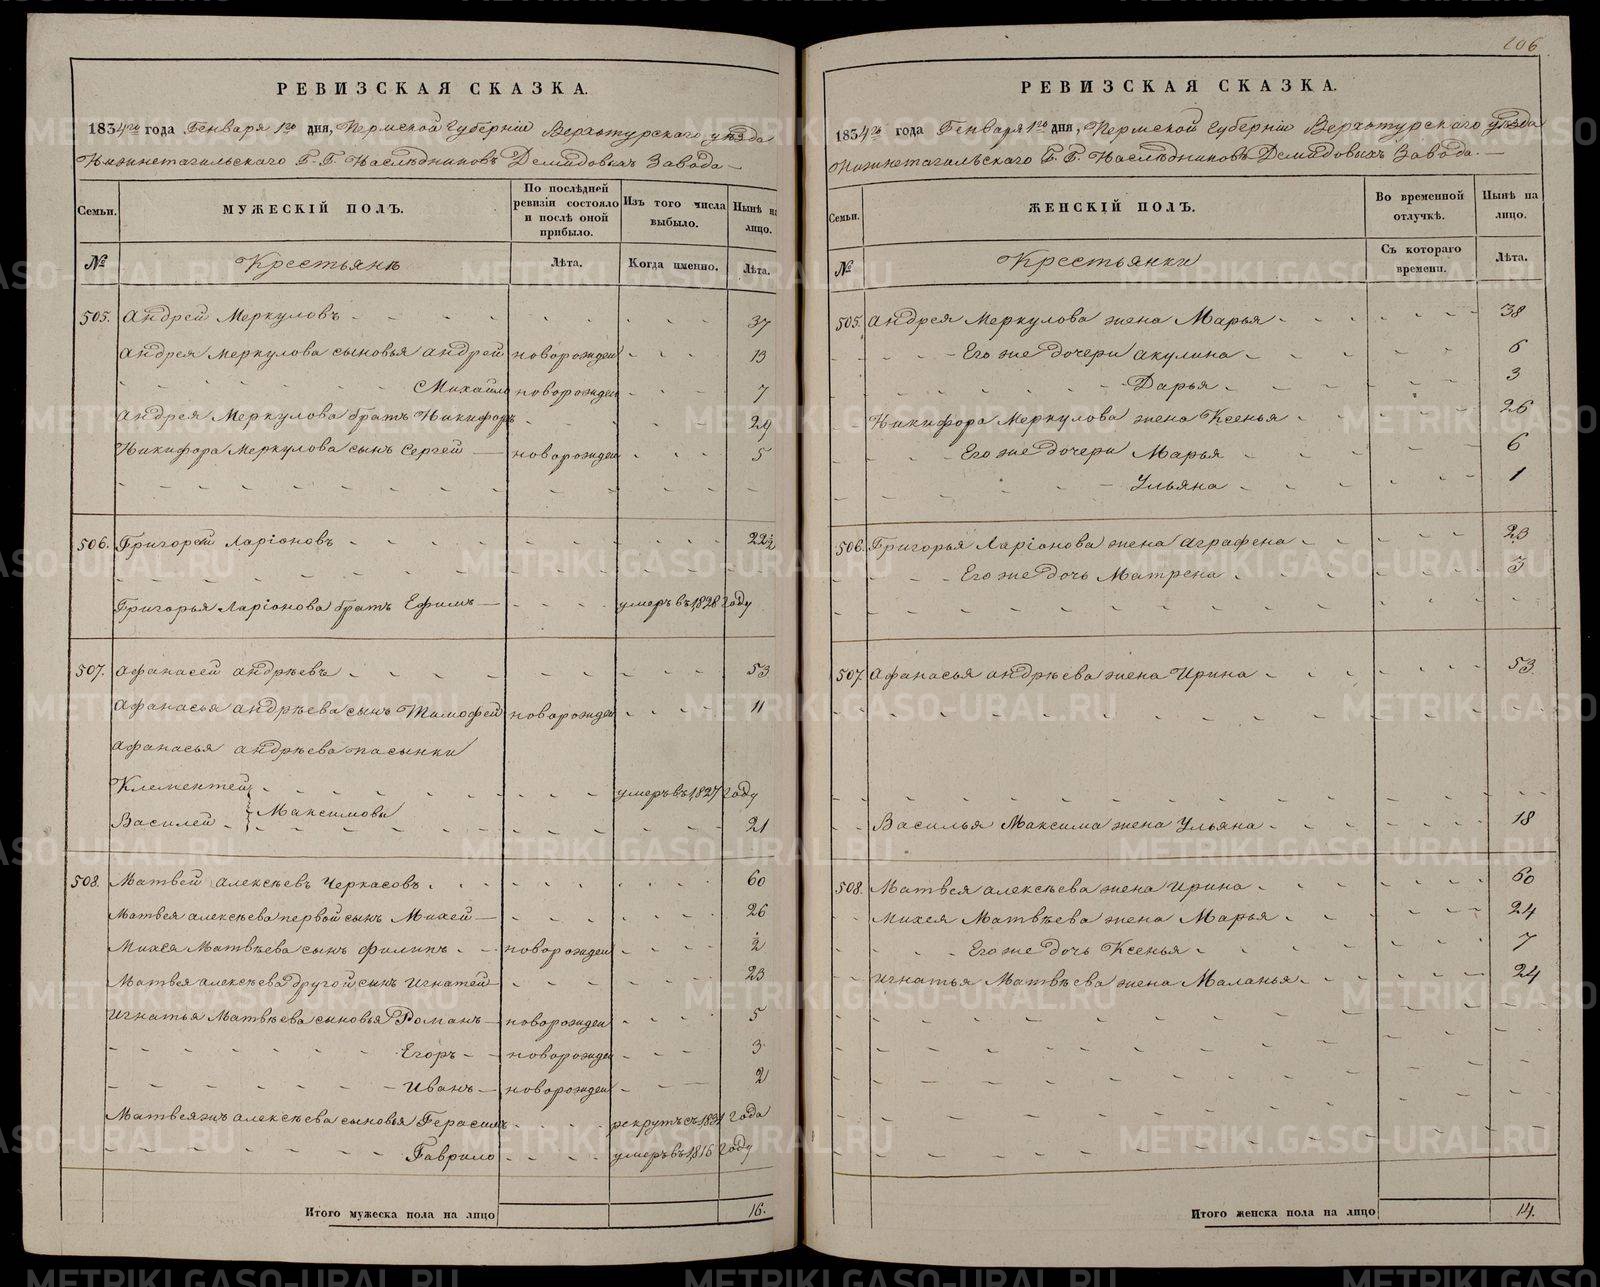 РЕВИЗСКАЯ СКАЗКА.
1834го года Генваря 1го дня, Пермской Губернiи Верхотурского уѣзда
Нижнетагильского Г. Г. Наслѣдниковъ Демидовыхъ Завода
Семьи.
МУЖЕСКIЙ ПОЛЪ.
По послѣдней ревизiи состояло и послѣ оной прибыло.
Изъ того числа выбыло.
Нынѣ на лицо.
№
Крестьянѣ
Лѣта.
Когда именно.
Лѣта.
505. Андрей Меркуловъ 37
Андрея Меркулова сыновья Андрей новорожден 13
Михайло новорожден 7
Андрея Меркулова братъ Никифоръ 29
Никифора Меркулова сынъ Сергей новорожден 5
506. Григорей Ларiоновъ 22½
Григорья Ларiонова братъ Ефимъ умеръ въ 1828 году
507. Афанасей Андрѣевъ 53
Афанасья Андрѣева сынъ Тимофей новорожден 11
Афанасья Андрѣева пасынки
Клементей умеръ въ 1827 году
Максимовы
Василей 21
508. Матвей Алексѣевъ Черкасовъ 60
Матвея Алексѣева первой сынъ Михей 26
Михея Матвѣева сынъ Филипъ новорожден ½
Матвея Алексѣева другой сынъ Игнатей 23
Игнатья Матвѣева сыновья Романъ новорожден 5
Егоръ новорожден 3
Иванъ новорожден 2
Матвея жъ Алексѣева сыновья Герасимъ рекрутъ съ 1831 года
Гаврило умеръ въ 1816 году
Итого мужеска пола на лицо 16.
106
РЕВИЗСКАЯ СКАЗКА.
1834го года Генваря 1го дня, Пермской Губернiи Верхотурского уѣзда
Нижнетагильского Г. Г. Наслѣдниковъ Демидовыхъ Завода.
Семьи.
ЖЕНСКIЙ ПОЛЪ.
Во временной отлучкѣ.
Нынѣ на лицо.
№
Крестьянки
Съ котораго времени.
Лѣта.
505. Андрея Меркулова жена Марья 38
Его же дочери Акулина 6
Дарья 3
Никифора Меркулова жена Ксенья 26
Его же дочери Марья 6
Ульяна 1
506. Григорья Ларiонова жена Аграфена 23
Его же дочь Матрена 3
507. Афанасья Андрѣева жена Ирина 53
Василья Максима жена Ульяна 18
508. Матвея Алексѣева жена Ирина 60
Михея Матвѣева жена Марья 24
Его же дочь Ксенья 7
Игнатья Матвѣева жена Маланья 24
Итого женска пола на лицо 14.
METRIKI.GASO-URAL.RU